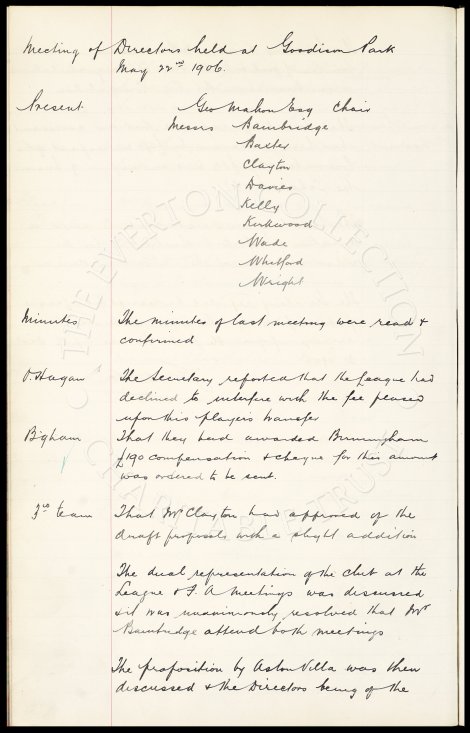 Meeting of Directors held at Goodison Park
May 22nd 1906.
Present. Geo Mahon Esq Chair
Messrs Bainbridge
Baxter
Clayton
Davies
Kelly
Kirkwood
Wade
Whitford
Wright
Minutes The minutes of last meeting were read &
confirmed
O'Hagan The Secretary reported that the League had
declined to interfere with the fee placed
upon this players transfer
Bigham That they had awarded Birmingham
£190 compensation & cheque for this amount
was ordered to be sent.
3rd team That Mr Clayton had approved of the
draft proposals with a slight addition
The dual representation of the club at the
League & F.A meetings was discussed
& it was unanimously resolved that Mr
Bainbridge attend both meetings
The proposition by Aston Villa was then
discussed & the Directors being of the
THE EVERTON COLLECTION
CHARITABLE TRUST